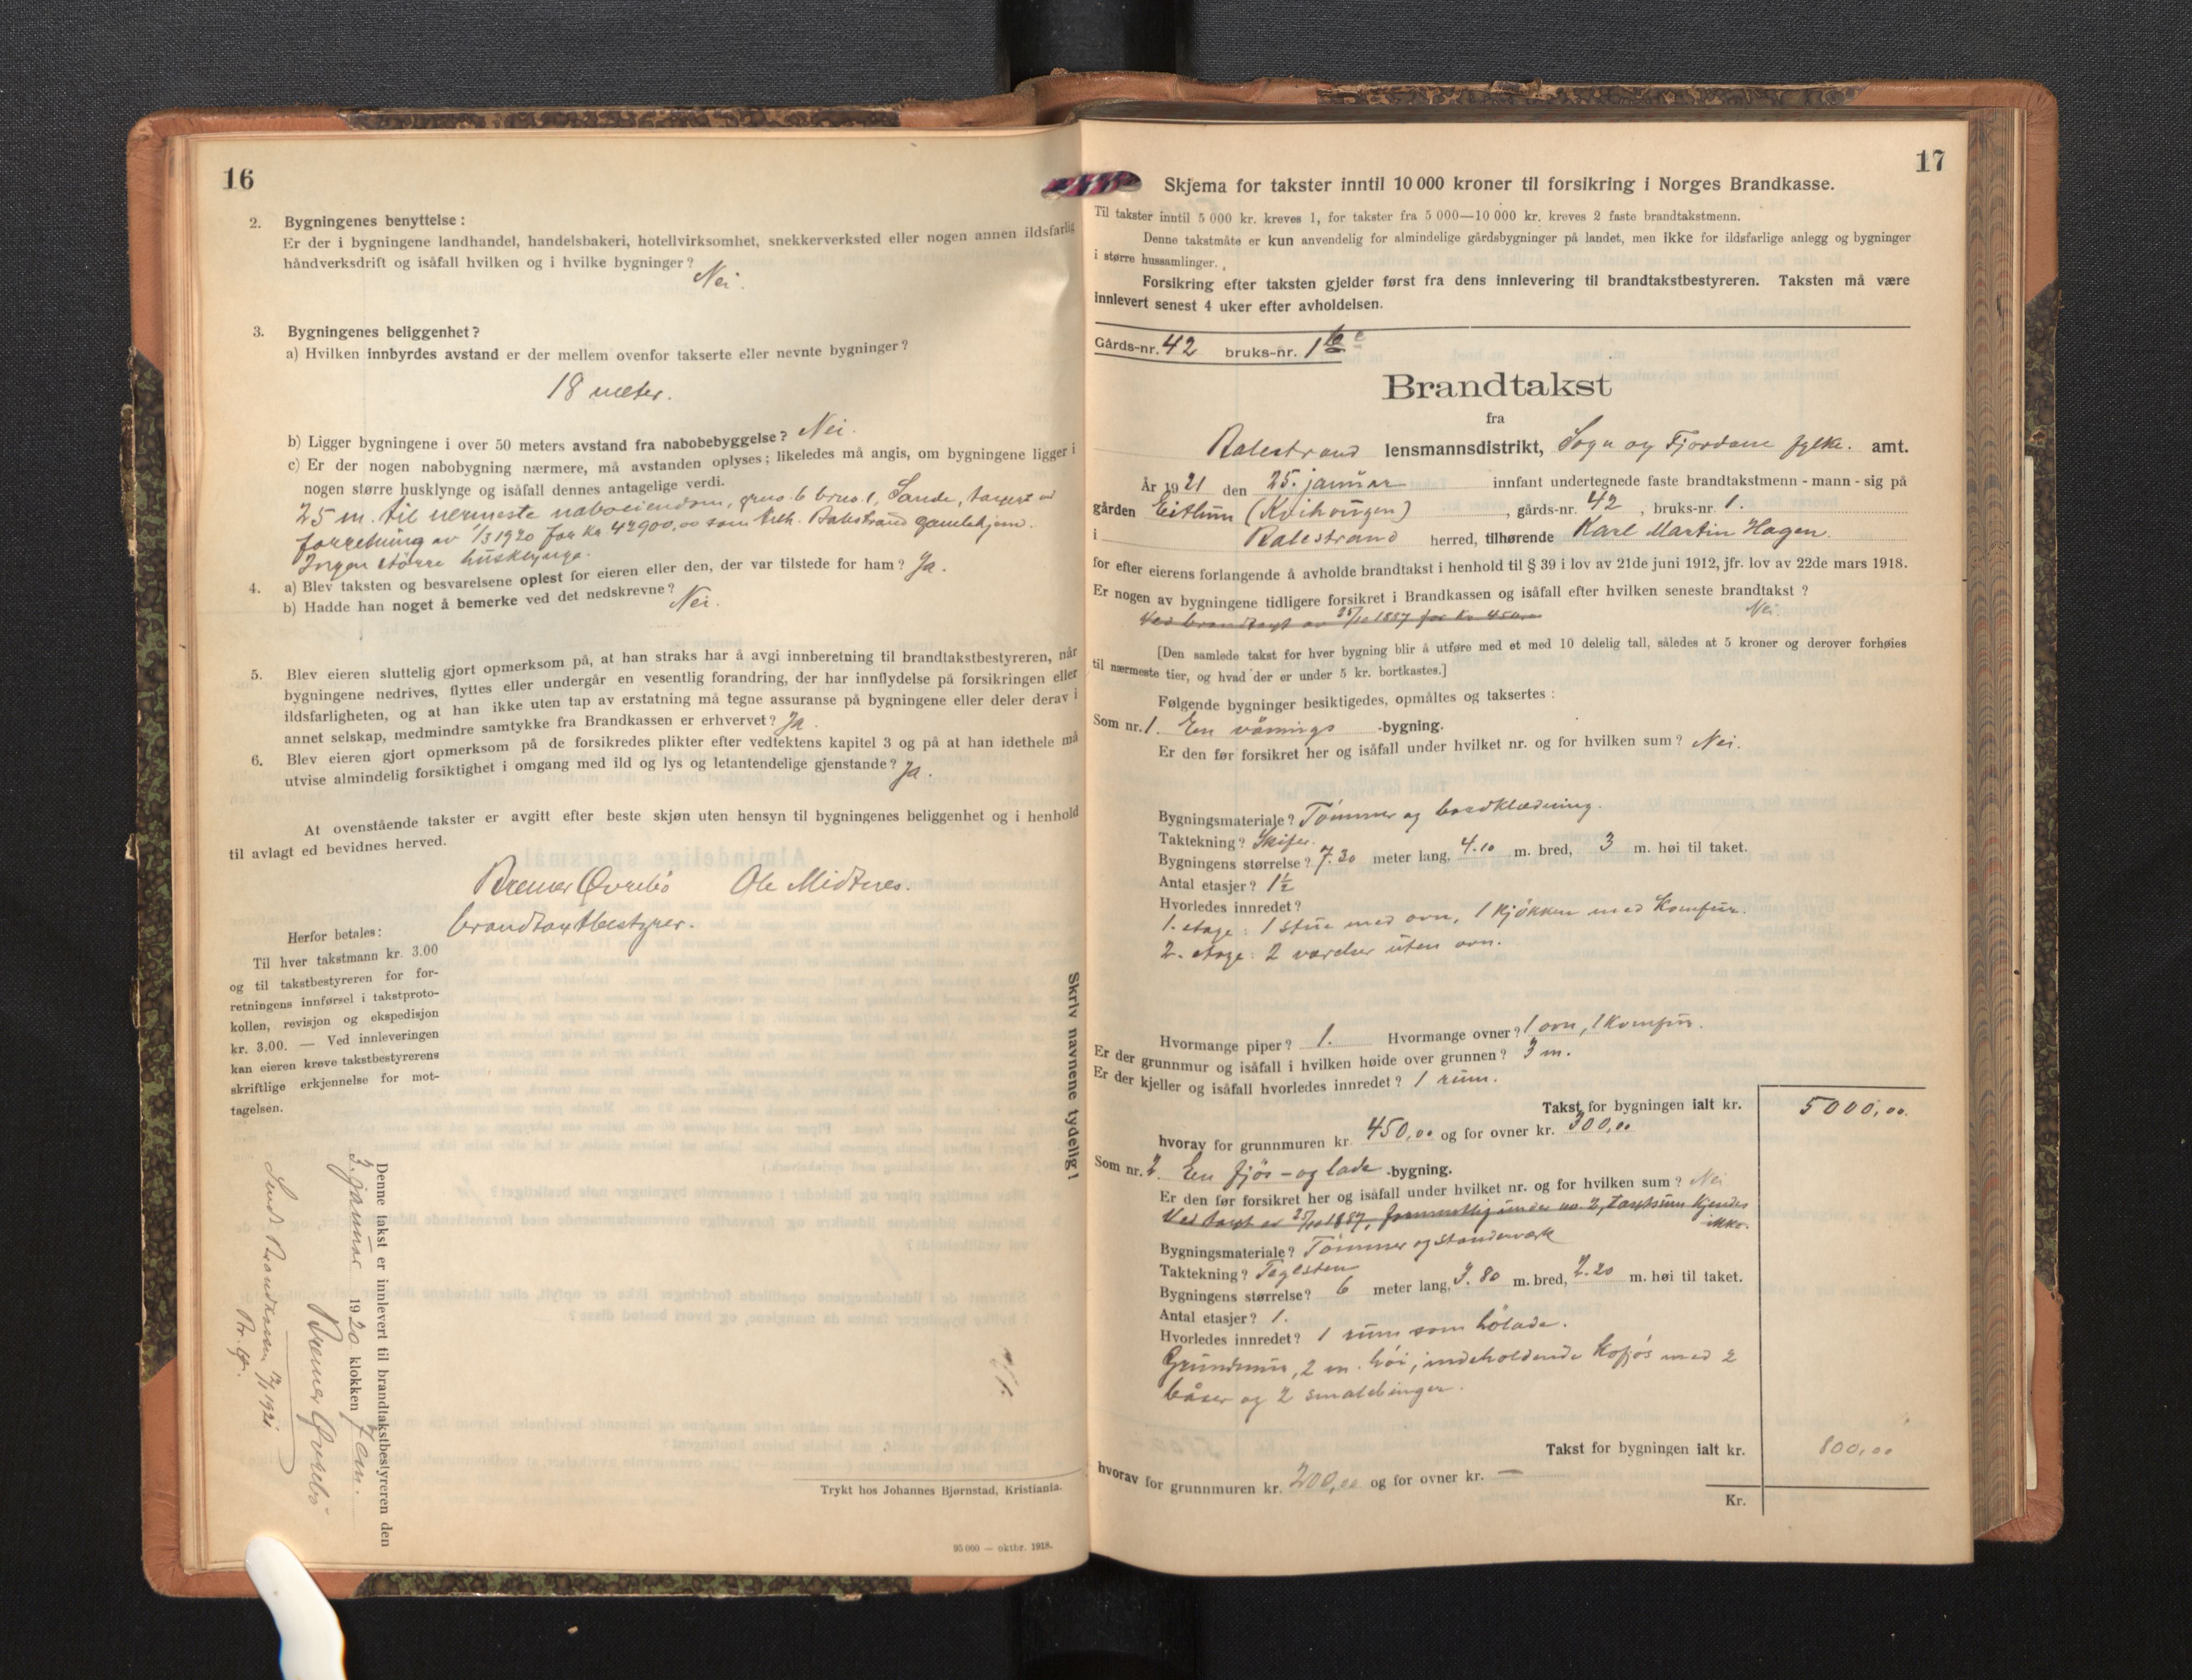 16
2. Bygningenes benyttelse:
Er der i bygningene landhandel, handelsbakeri, hotellvirksomhet, snekkerverksted eller nogen annen ildsfarlig
håndverksdrift og isåfall hvilken og i hvilke bygninger?
Nei.
3. Bygningenes beliggenhet?
a) Hvilken innbyrdes avstand er der mellem ovenfor takserte eller nevnte bygninger?
18 meter.
b) Ligger bygningene i over 50 meters avstand fra nabobebyggelse? Nei.
c) Er der nogen nabobygning nærmere, må avstanden oplyses; likeledes må angis, om bygningene ligger i
nogen større husklynge og isåfall dennes antagelige verdi.
25 m. til nermeste naboeiendom, grno. 6 brno. 1, Sande, taxert ved
forretning av 1/3 1920 for kr 42900,00 som tilh. Balestrand gamlehjem.
Ingen större husklynge.
4. a) Blev taksten og besvarelsene oplest for eieren eller den, der var tilstede for ham? Ja.
b) Hadde han noget å bemerke ved det nedskrevne? Nei.
5. Blev eieren sluttelig gjort opmerksom på, at han straks har å avgi innberetning til brandtakstbestyreren, når
bygningene nedrives, flyttes eller undergår en vesentlig forandring, der har innflydelse på forsikringen eller
ildsfarligheten, og at han ikke uten tap av erstatning må tegne assuranse på bygningene eller deler derav i
annet selskap, medmindre samtykke fra Brandkassen er erhvervet? Ja.
6. Blev eieren gjort opmerksom på de forsikredes plikter efter vedtektens kapitel 3 og på at han idethele må
utvise almindelig forsiktighet i omgang med ild og lys og letantendelige gjenstande? Ja.
At ovenstående takster er avgitt efter beste skjøn uten hensyn til bygningenes beliggenhet og i henhold
til avlagt ed bevidnes herved.
Bremer Øvrebö Ole Midtnes.
brandtaxtbestyrer.
Herfor betales:
Til hver takstmann kr. 3.00
og til takstbestyreren for for-
retningens innførsel i takstproto-
kollen, revisjon og ekspedisjon
kr. 3.00. — Ved innleveringen
kan eieren kreve takstbestyrerens
skriftlige erkjennelse for mot-
tagelsen.
Skriv navnene tydelig!
Denne takst er innlevert til brandtakstbestyreren den
3. januar 1920 klokken 7 em.
Bremer Øvrebö
Sendt Brandkassen 1921.
Br. Ø.
Trykt hos Johannes Bjørnstad, Kristiania.
95 000 — oktbr. 1918.
17
Skjema for takster inntil 10 000 kroner til forsikring i Norges Brandkasse.
Til takster inntil 5 000 kr. kreves 1, for takster fra 5 000—10 000 kr. kreves 2 faste brandtakstmenn.
Denne takstmåte er kun anvendelig for almindelige gårdsbygninger på landet, men ikke for ildsfarlige anlegg og bygninger
i større hussamlinger.
Forsikring efter taksten gjelder først fra dens innlevering til brandtakstbestyreren. Taksten må være
innlevert senest 4 uker efter avholdelsen.
Gårds-nr. 42 bruks-nr. 1
Brandtakst
fra
Balestrand lensmannsdistrikt, Sogn og Fjordane fylke. amt.
År 1921 den 25. januar innfant undertegnede faste brandtakstmenn - mann - sig på
gården Eitlum (Kvihaugen), gårds-nr. 42, bruks-nr. 1.
i Balestrand herred, tilhørende Karl Martin Hagen.
for efter eierens forlangende å avholde brandtakst i henhold til § 39 i lov av 21de juni 1912, jfr. lov av 22de mars 1918.
Er nogen av bygningene tidligere forsikret i Brandkassen og isåfall efter hvilken seneste brandtakst?
Ved brandtaxt av 25/10 1887 for kr 450,00 Nei.
[Den samlede takst for hver bygning blir å utføre med et med 10 delelig tall, således at 5 kroner og derover forhøies
til nærmeste tier, og hvad der er under 5 kr. bortkastes.]
Følgende bygninger besiktigedes, opmåltes og taksertes:
Som nr. 1. En vånings -bygning.
Er den før forsikret her og isåfall under hvilket nr. og for hvilken sum? Nei.
Bygningsmateriale? Tömmer og bordklædning.
Taktekning? Skifer.
Bygningens størrelse? 7.30 meter lang, 4.10 m. bred, 3 m. høi til taket.
Antal etasjer? 1½
Hvorledes innredet?
1. etage: 1 stue med ovn, 1 kjökken med komfur.
2. etage: 2 værelser uten ovn.
Hvormange piper? 1. Hvormange ovner? 1 ovn, 1 komfur.
Er der grunnmur og isåfall i hvilken høide over grunnen? 3 m.
Er der kjeller og isåfall hvorledes innredet? 1 rum.
Takst for bygningen ialt kr. 5000,00.
hvorav for grunnmuren kr. 450,00 og for ovner kr. 300,00
Som nr. 2. En fjös- og lade -bygning.
Er den før forsikret her og isåfall under hvilket nr. og for hvilken sum? Nei
Ved taxt av 25/10 1887, formentlig under no. 2, taxtsum kjendes
ikke.
Bygningsmateriale? Tömmer og standerværk
Taktekning? Teglsten
Bygningens størrelse? 6 meter lang, 3.80 m. bred, 2.20 m. høi til taket.
Antal etasjer? 1.
Hvorledes innredet? 1 rum som hölade.
Grundmur, 2 m. höi, indeholdende kofjös med 2
båser og 2 smalebinger.
Takst for bygningen ialt kr. 800,00
hvorav for grunnmuren kr. 200,00 og for ovner kr. —
Kr.